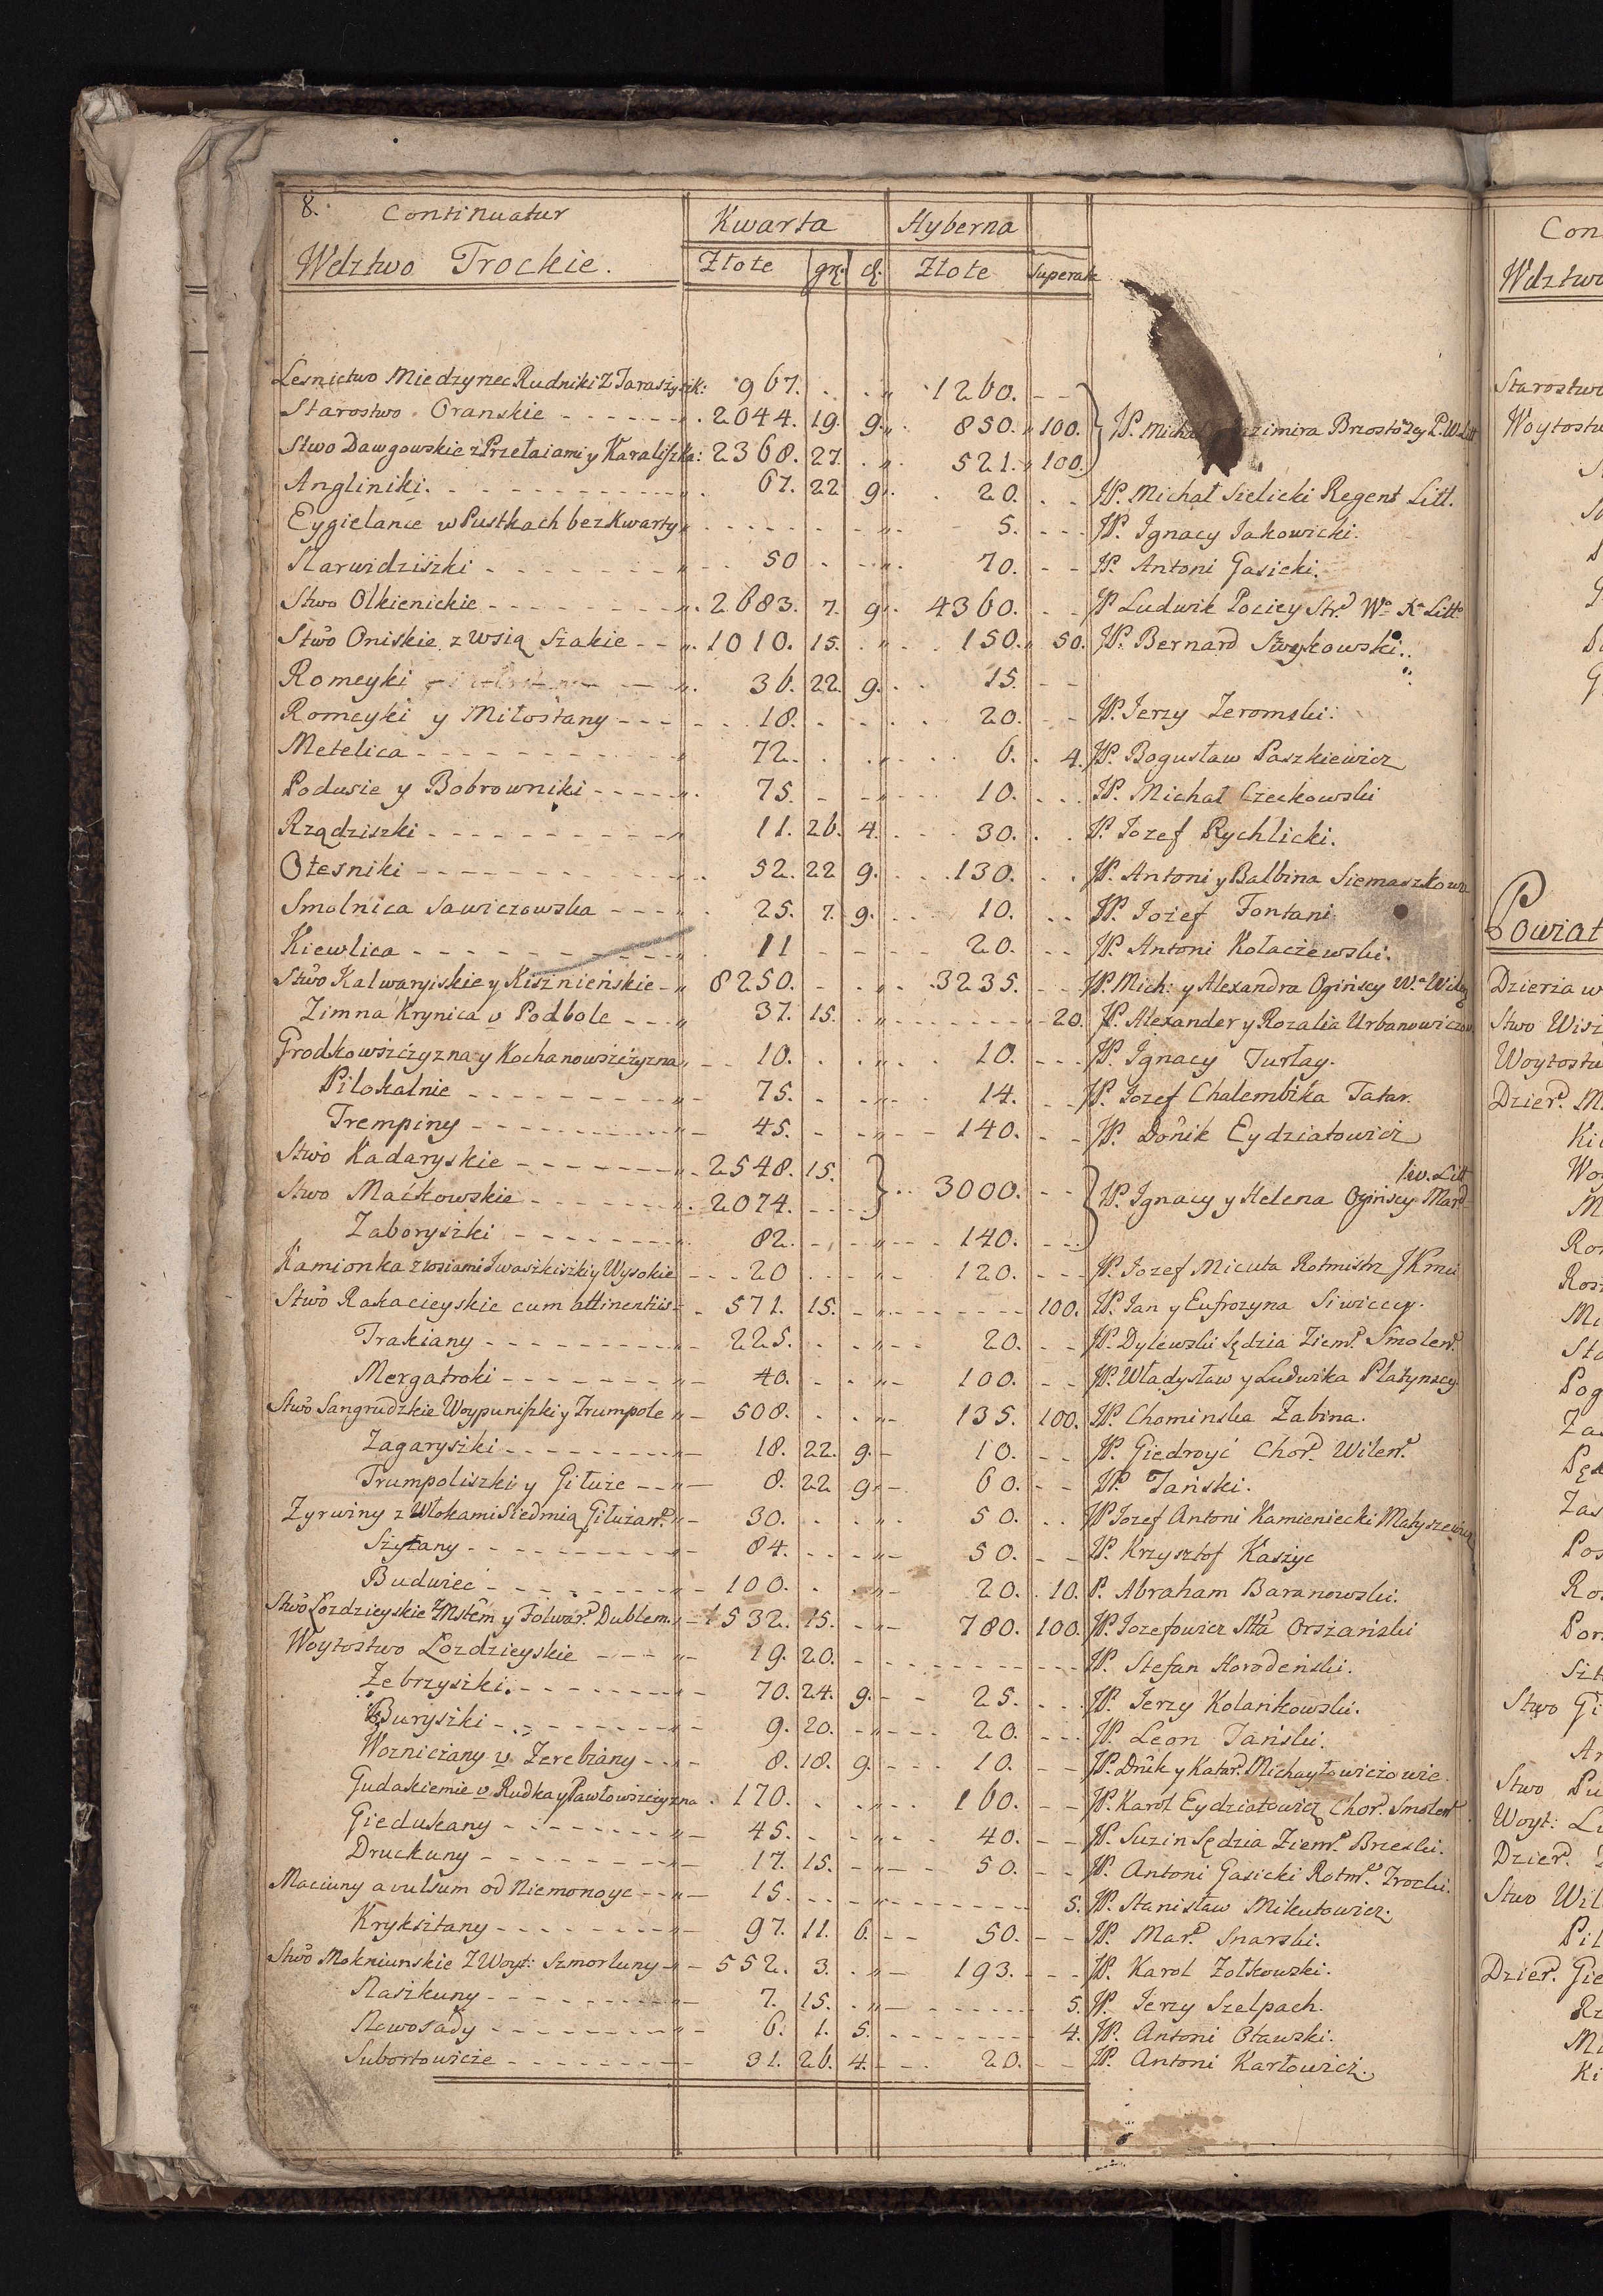 8. Continuatur Kwarta Hyberna
Wdztwo Trockie. Złote gr. d. Złote Superate
Lesnictwo Miedzyrzec Rudniki Z Taraszyszk: 967. 1260.
Starostwo Oranskie 2044. 19. 9. 850. 100. JP. Michał Brzostowscy P. W. Litt
Stwo Dawgowskie z Przełaiami y Karaliszka: 2368. 27. 521. 100.
Angliniki. 67. 22 9. 20. JP. Michał Sielicki Regent Litt.
Eygielance w Pustkach bez Kwarty 5. JP. Ignacy Iakowicki.
Narwidziszki 50 70. JP. Antoni Gasicki.
Stwo Olkienickie 2683. 7. 9. 4360. JP Ludwik Pociey Str. Wo. Xa Litto
Stwo Oniskie z wsią Szakie 1010. 15. 150. 50. JP. Bernard Strykowski.
Romeyki 36. 22. 9. 15.
Romeyki y Miłostany 18. 20. JP. Jerzy Zeromski.
Metelica 72. 6. 4. JP. Bogusław Paszkiewicz
Podusie y Bobrowniki 75. 10. JP. Michał Czeckowski
Rządziszki 11. 26. 4. 30. P. Iozef Rychlicki.
Olesniki 52. 22 9. 130. JP. Antoni y Balbina Siemaszkowie
Smolnica Sawiczowska 25. 7. 9. 10. JP. Iozef Fontani
Kiewlica 11 20. JP. Antoni Kołaczewski.
Stwo Kalwaryiskie y Kisznieńskie 8250. 3235. JP. Mich: y Alexandra Ogińscy
Zimna Krynica v Podbole 37. 15. 20. JP. Alexander y Rozalia Urbanowiczow
Grodkowszczyzna y Kochanowszczyzna 10. 10. JP. Ignacy Turłay.
Pilokalnie 75. 14. JP. Iozef Chalembika Tatar.
Trempiny 45. 140. JP. Dońik Eydziatowicz
Stwo Kadaryskie 2548. 15. liw. Litt
Stwo Maćkowskie 2074. 3000. JP. Ignacy y Helena Ogińscy Mar.
Zaboryszki 82. 140.
Kamionka z wsiami Iwaszkiszki y Wysokie 20 120. JP. Iozef Micuta Rotmistrz JKmci
Stwo Rakacieyskie cum attinentiis 571. 15. 100. JP. Ian y Eufrozyna Siwiccy.
Trakiany 225. 20. JP. Dylewski Sędzia Ziem. Smolen.
Mergatroki 40. 100. JP. Władysław y Ludwika Płażynscy
Stwo Sangrudzkie Woypuniszki y Trumpole 508. 135. 100. JP. Chominska Zabina.
Zagaryszki 18. 22. 9. 10. JP. Giedroyć Chor. Wilen.
Trumpoliszki y Giłuże 8. 22 9. 60. JP. Tański.
Zyrwiny z Włokami Siedmią Giłużan. 30. 50. JP Iozef Antoni Kamieniecki Matyszewicz
Szyłany 84. 50. JP. Krzysztof Kaszyc
Budwieć 100. 20. 10. P. Abraham Baranowski.
Stwo Łozdzieyskie Z Mstem y Folwar. Dublem. 1532. 15. 780. 100. JP. Iozefowicz Stta Orszański
Woytostwo Łozdzieyskie 19. 20. JP. Stefan Horodeński.
Żebrzyszki. 70. 24. 9. 25. JP. Jerzy Kolankowski.
Buryszki 9. 20. 20. JP. Leon Tański.
Wozniczany v Zerebiany 8. 18. 9. 10. JP. Dnik y Katar. Michayłowiczowie.
Gudakiemie v Rudka y Pawłowszczyzna 170. 160. JP. Karol Eydziatowicz Chor. Smolen.
Giedukany 45. 40. JP. Suzin Sędzia Ziem. Brzeski.
Druckuny 17. 15. 50. JP. Antoni Gasicki Rotm. Trocki.
Maciuny avulsum od Niemonoyc 15. 5. JP. Stanisław Mikutowicz.
Krykształy 97. 11. 6. 50. JP. Mar. Snarski.
Stwo Mokniunskie Z Woyt: Szmorluny 552. 3. 193. JP. Karol Zołkowski.
Naszkuny 7. 15. 5. JP. Jerzy Szelpach.
Nowosady 6. 1. 5. 4. JP. Antoni Oławski.
Subortowicze 31. 26. 4. 20. JP. Antoni Karłowicz.
Wdztwo
Powiat